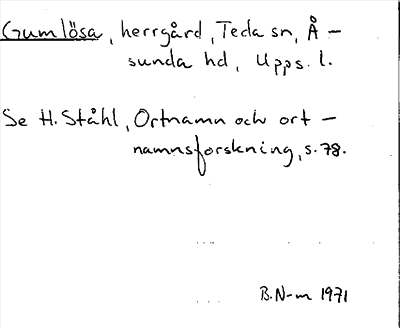 Gumlösa, herrgård, Teda sn, Å-
sunda hd, Upps. l.
Se H. Ståhl, Ortnamn och ort-
namnsforskning, s. 78.
B.N-m 1971